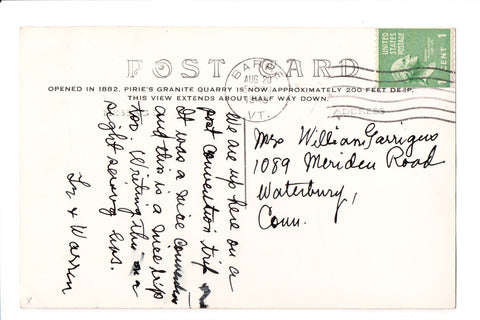 POST CARD
OPENED IN 1882, PIRIE'S GRANITE QUARRY IS NOW APPROXIMATELY 200 FEET DEEP.
THIS VIEW EXTENDS ABOUT HALF WAY DOWN.
BARRE
AUG 20
VT.
UNITED
STATES
POSTAGE
1 CENT 1
ADDRESS
We are up here on a
post Convention trip
It was a nice Convention
and this is a nice trip
too. Writing this on a
sight seeing bus.
& Warren
Mrs William Garrigus
1089 Meriden Road
Waterbury,
Conn.
x